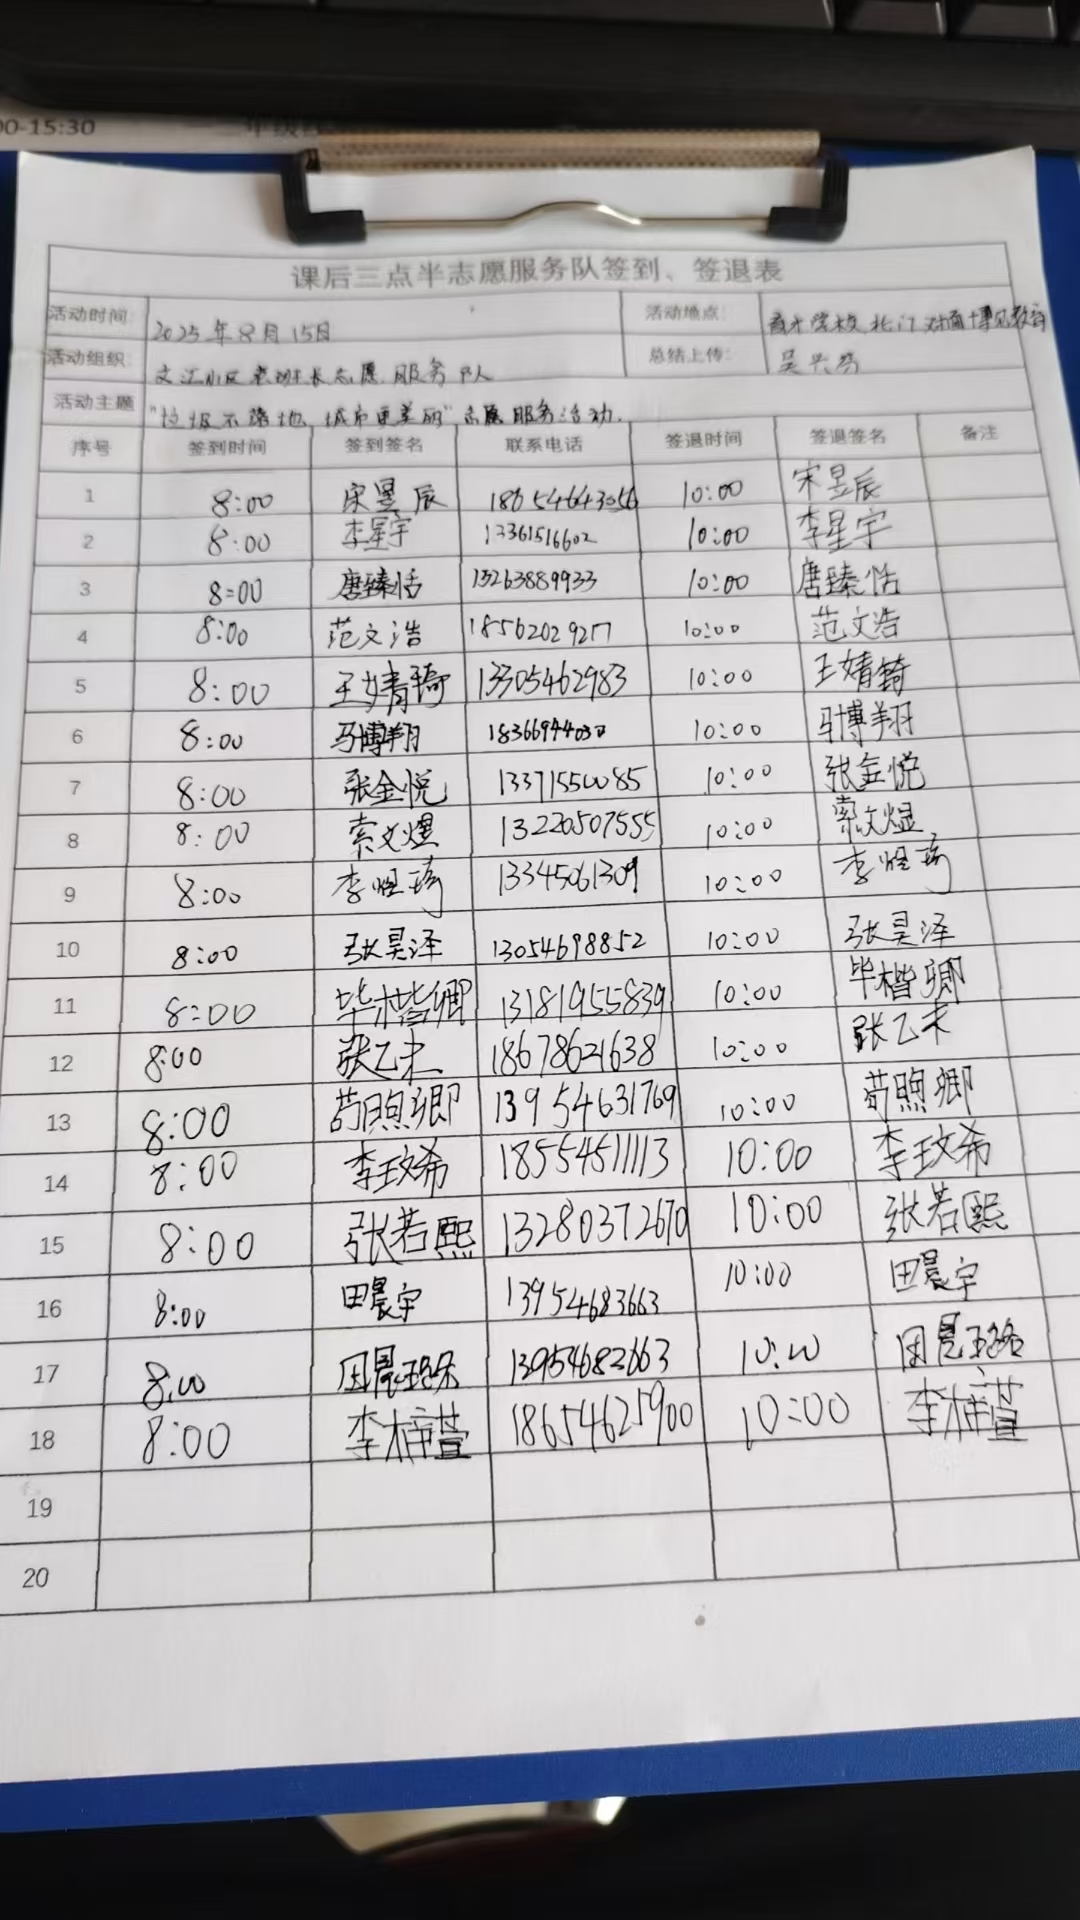 00-15:30
课后三点半志愿服务队签到、签退表
活动时间: 2025年8月15日 活动地点: 育才学校北门对面博见教育
活动组织: 文汇小区老班长志愿服务队 总结上传: 吴
活动主题 "垃圾不落地,城市更美丽"志愿服务活动.
序号 签到时间 签到签名 联系电话 签退时间 签退签名 备注
1 8:00 宋昱辰 18654643056 10:00 宋昱辰
2 8:00 李星宇 13361516602 10:00 李星宇
3 8:00 唐臻恬 13263889933 10:00 唐臻恬
4 8:00 范文浩 18562029217 10:00 范文浩
5 8:00 王婧琦 13305462983 10:00 王婧錡
6 8:00 马博翔 18366944030 10:00 马博翔
7 8:00 张金悦 13371550085 10:00 张金悦
8 8:00 索文煜 13220507555 10:00 索文煜
9 8:00 李煜琦 13345061309 10:00 李煜琦
10 8:00 张昊泽 13054698852 10:00 张昊泽
11 8:00 毕楷卿 13181955839 10:00 毕楷卿
12 8:00 张乙未 18678621638 10:00 张乙未
13 8:00 苟煦卿 13954631769 10:00 苟煦卿
14 8:00 李玟希 18554511113 10:00 李玟希
15 8:00 张若熙 13280372670 10:00 张若熙
16 8:00 田晨宇 13954683663 10:00 田晨宇
17 8:00 田晨 13954683663 10:00 田晨璐
18 8:00 李梓萱 18654625900 10:00 李梓萱
19
20